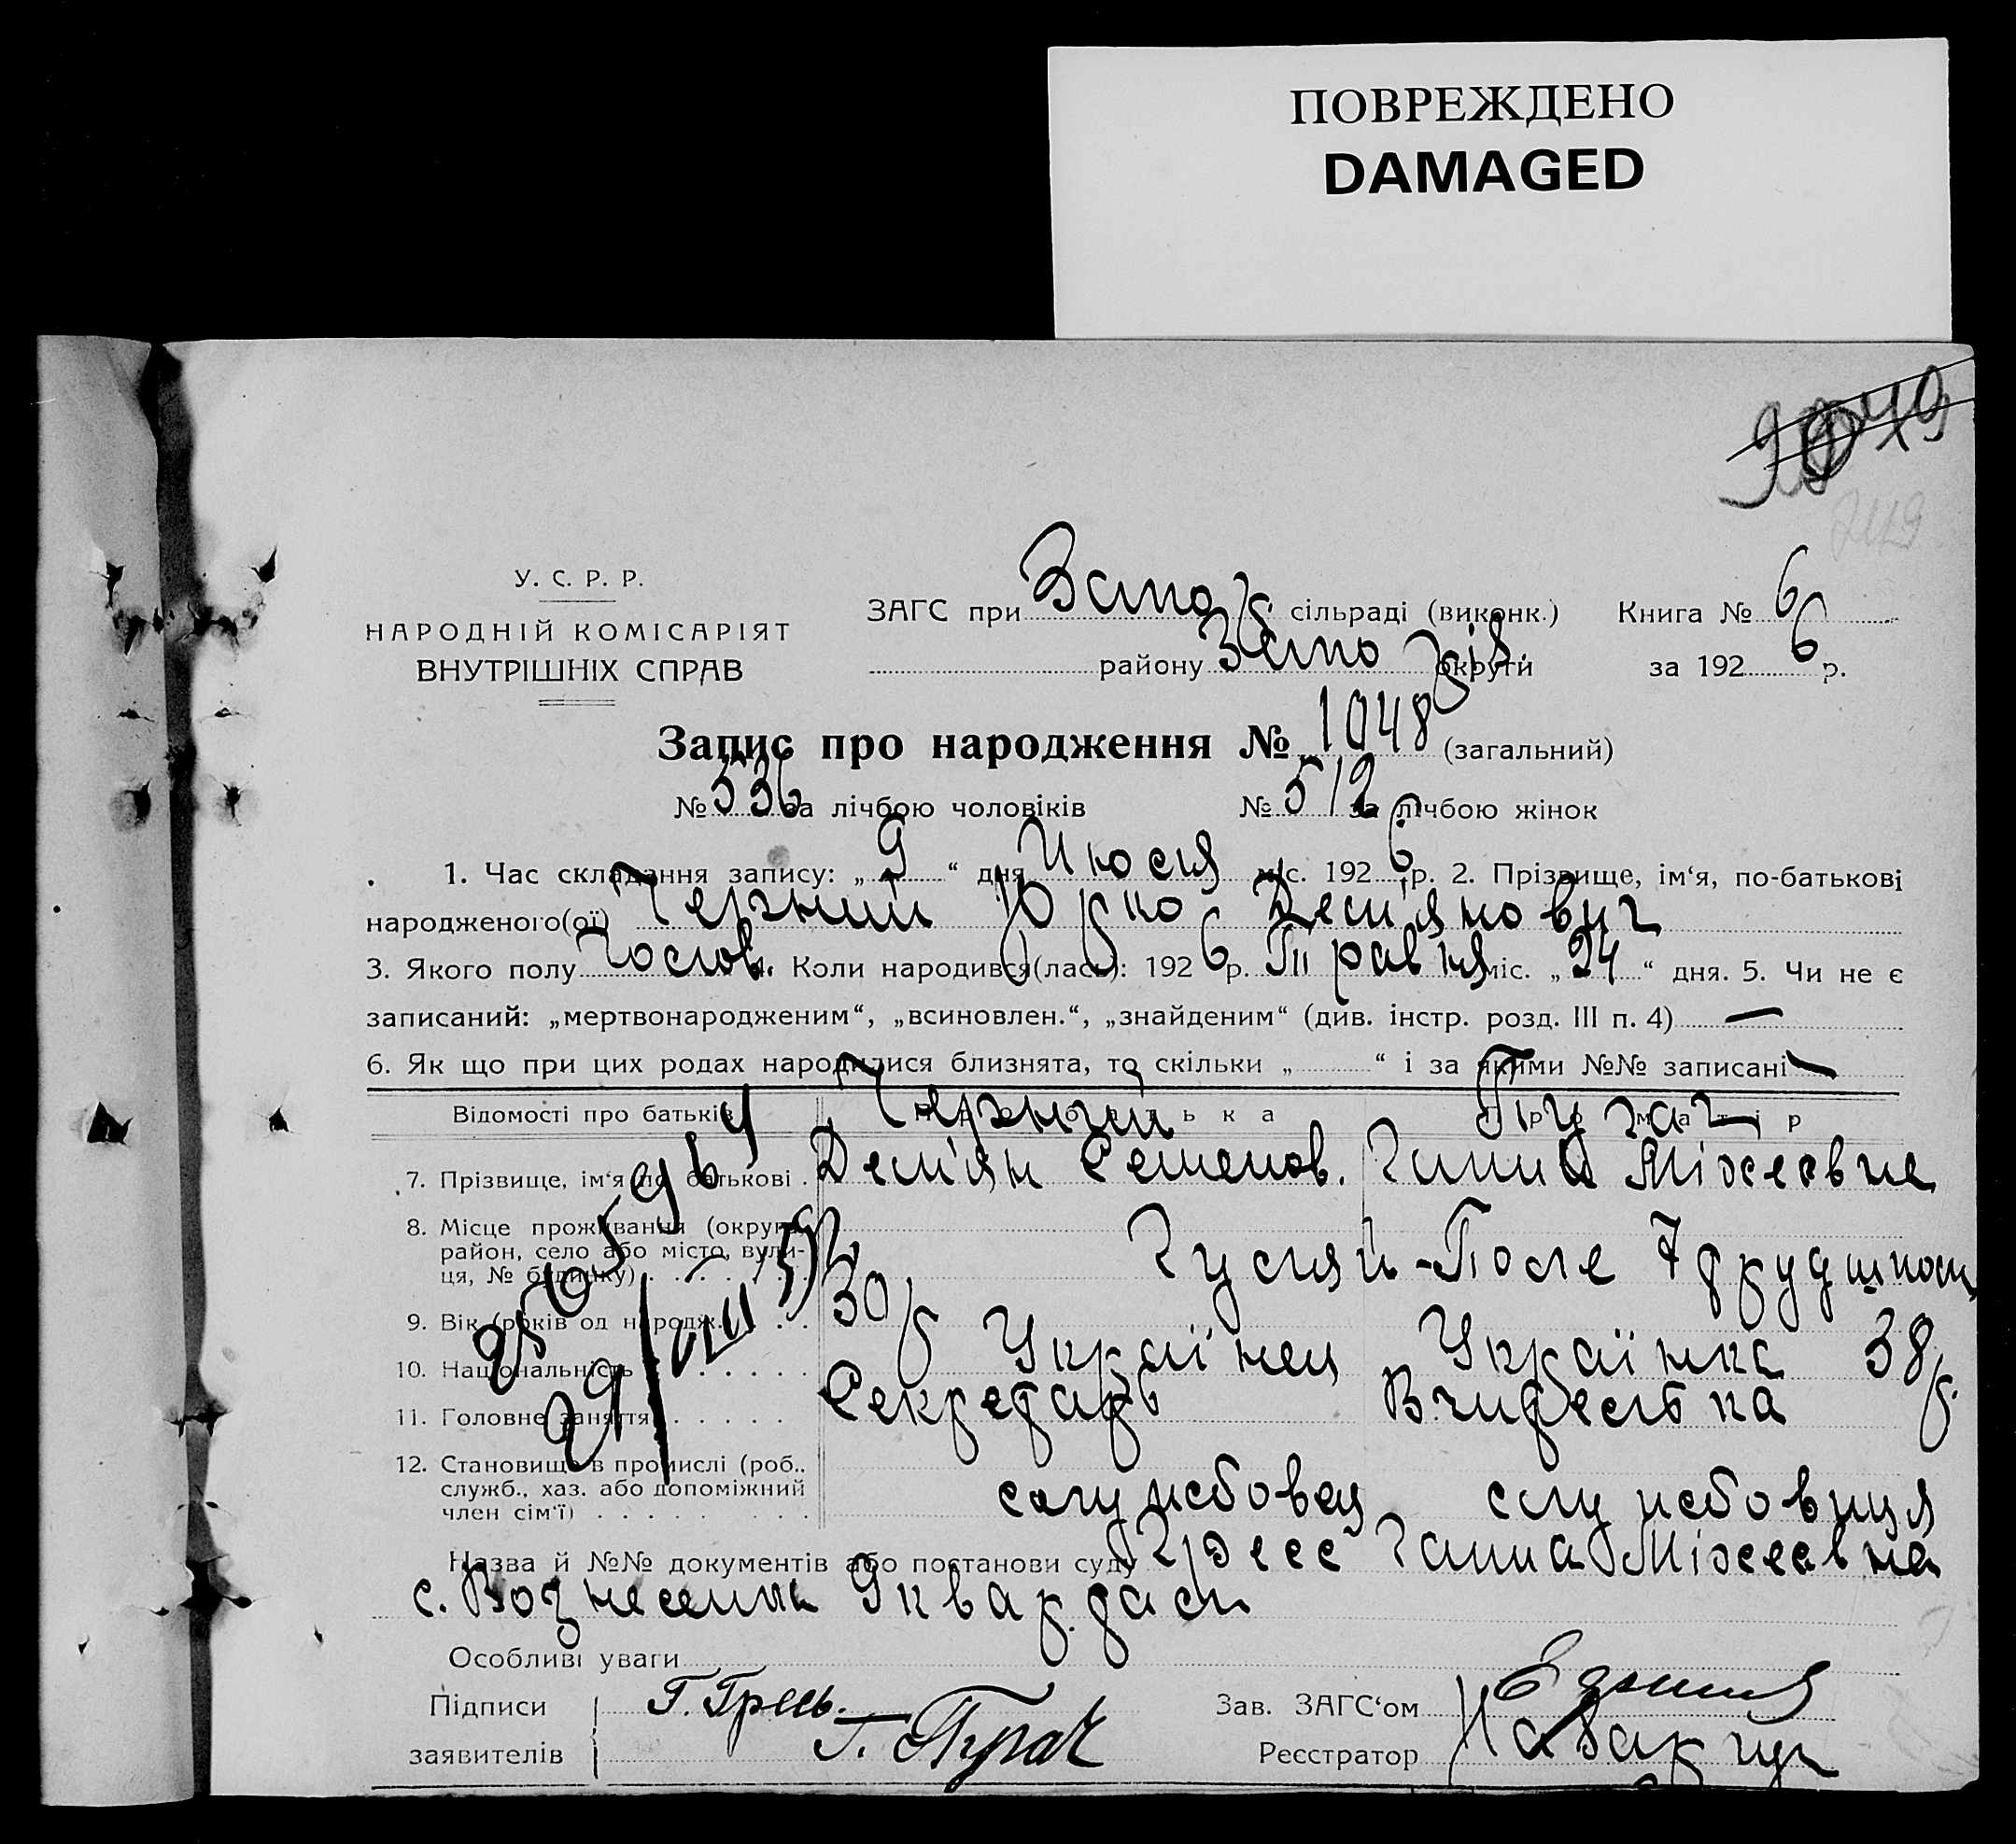 ПОВРЕЖДЕНО
DAMAGED
У. С. Р. Р.
НАРОДНІЙ КОМІСАРІЯТ
ВНУТРІШНІХ СПРАВ
ЗАГС при сільраді (виконк.) Книга № 6
району округи за 192 6 р.
Запис про народження № 1048 (загальний)
№ 536 за лічбою чоловіків № 512 за лічбою жінок
1. Час складання запису: „ 9 “ дня Июля міс. 192 6 р. 2. Прізвище, ім‘я, по-батькові
народженого(ої) Черний Юрко Дем'янович
3. Якого полу Чолов. 4. Коли народився(лась): 192 6 р. Травня міс. „ 24 “ дня. 5. Чи не є
записаний: „мертвонародженим“, „всиновлен.“, „знайденим“ (див. інстр. розд. III п. 4) —
6. Як що при цих родах народилися близнята, то скільки „ “ і за якими №№ записані —
Відомості про батьків Про батька Про матір
Черний
7. Прізвище, ім‘я по батькові . Дем'ян Семенов. Ганна Міхеевна
8. Місце проживання (округа,
район, село або місто, вули-
ця, № будинку) Гуляй-Поле
9. Вік (років од народж. 30 р 38 р.
10. Національність Українец Українка
11. Головне заняття Секретарь Вчителька
12. Становище в промислі (роб.,
служб., хаз. або допоміжний
член сім‘ї) службовец службовиця
Назва й №№ документів або постанови суду Ганна Міхеевна
с. Вознесенка
Особливі уваги
Підписи Г. Гресь.
заявителів Г. Пугач
Зав. ЗАГС‘ом
Реєстратор